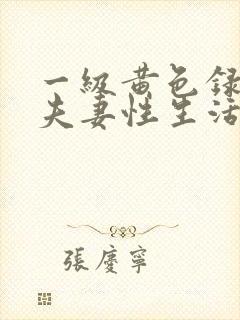 一級黄色録
夫妻性生活
張慶寧